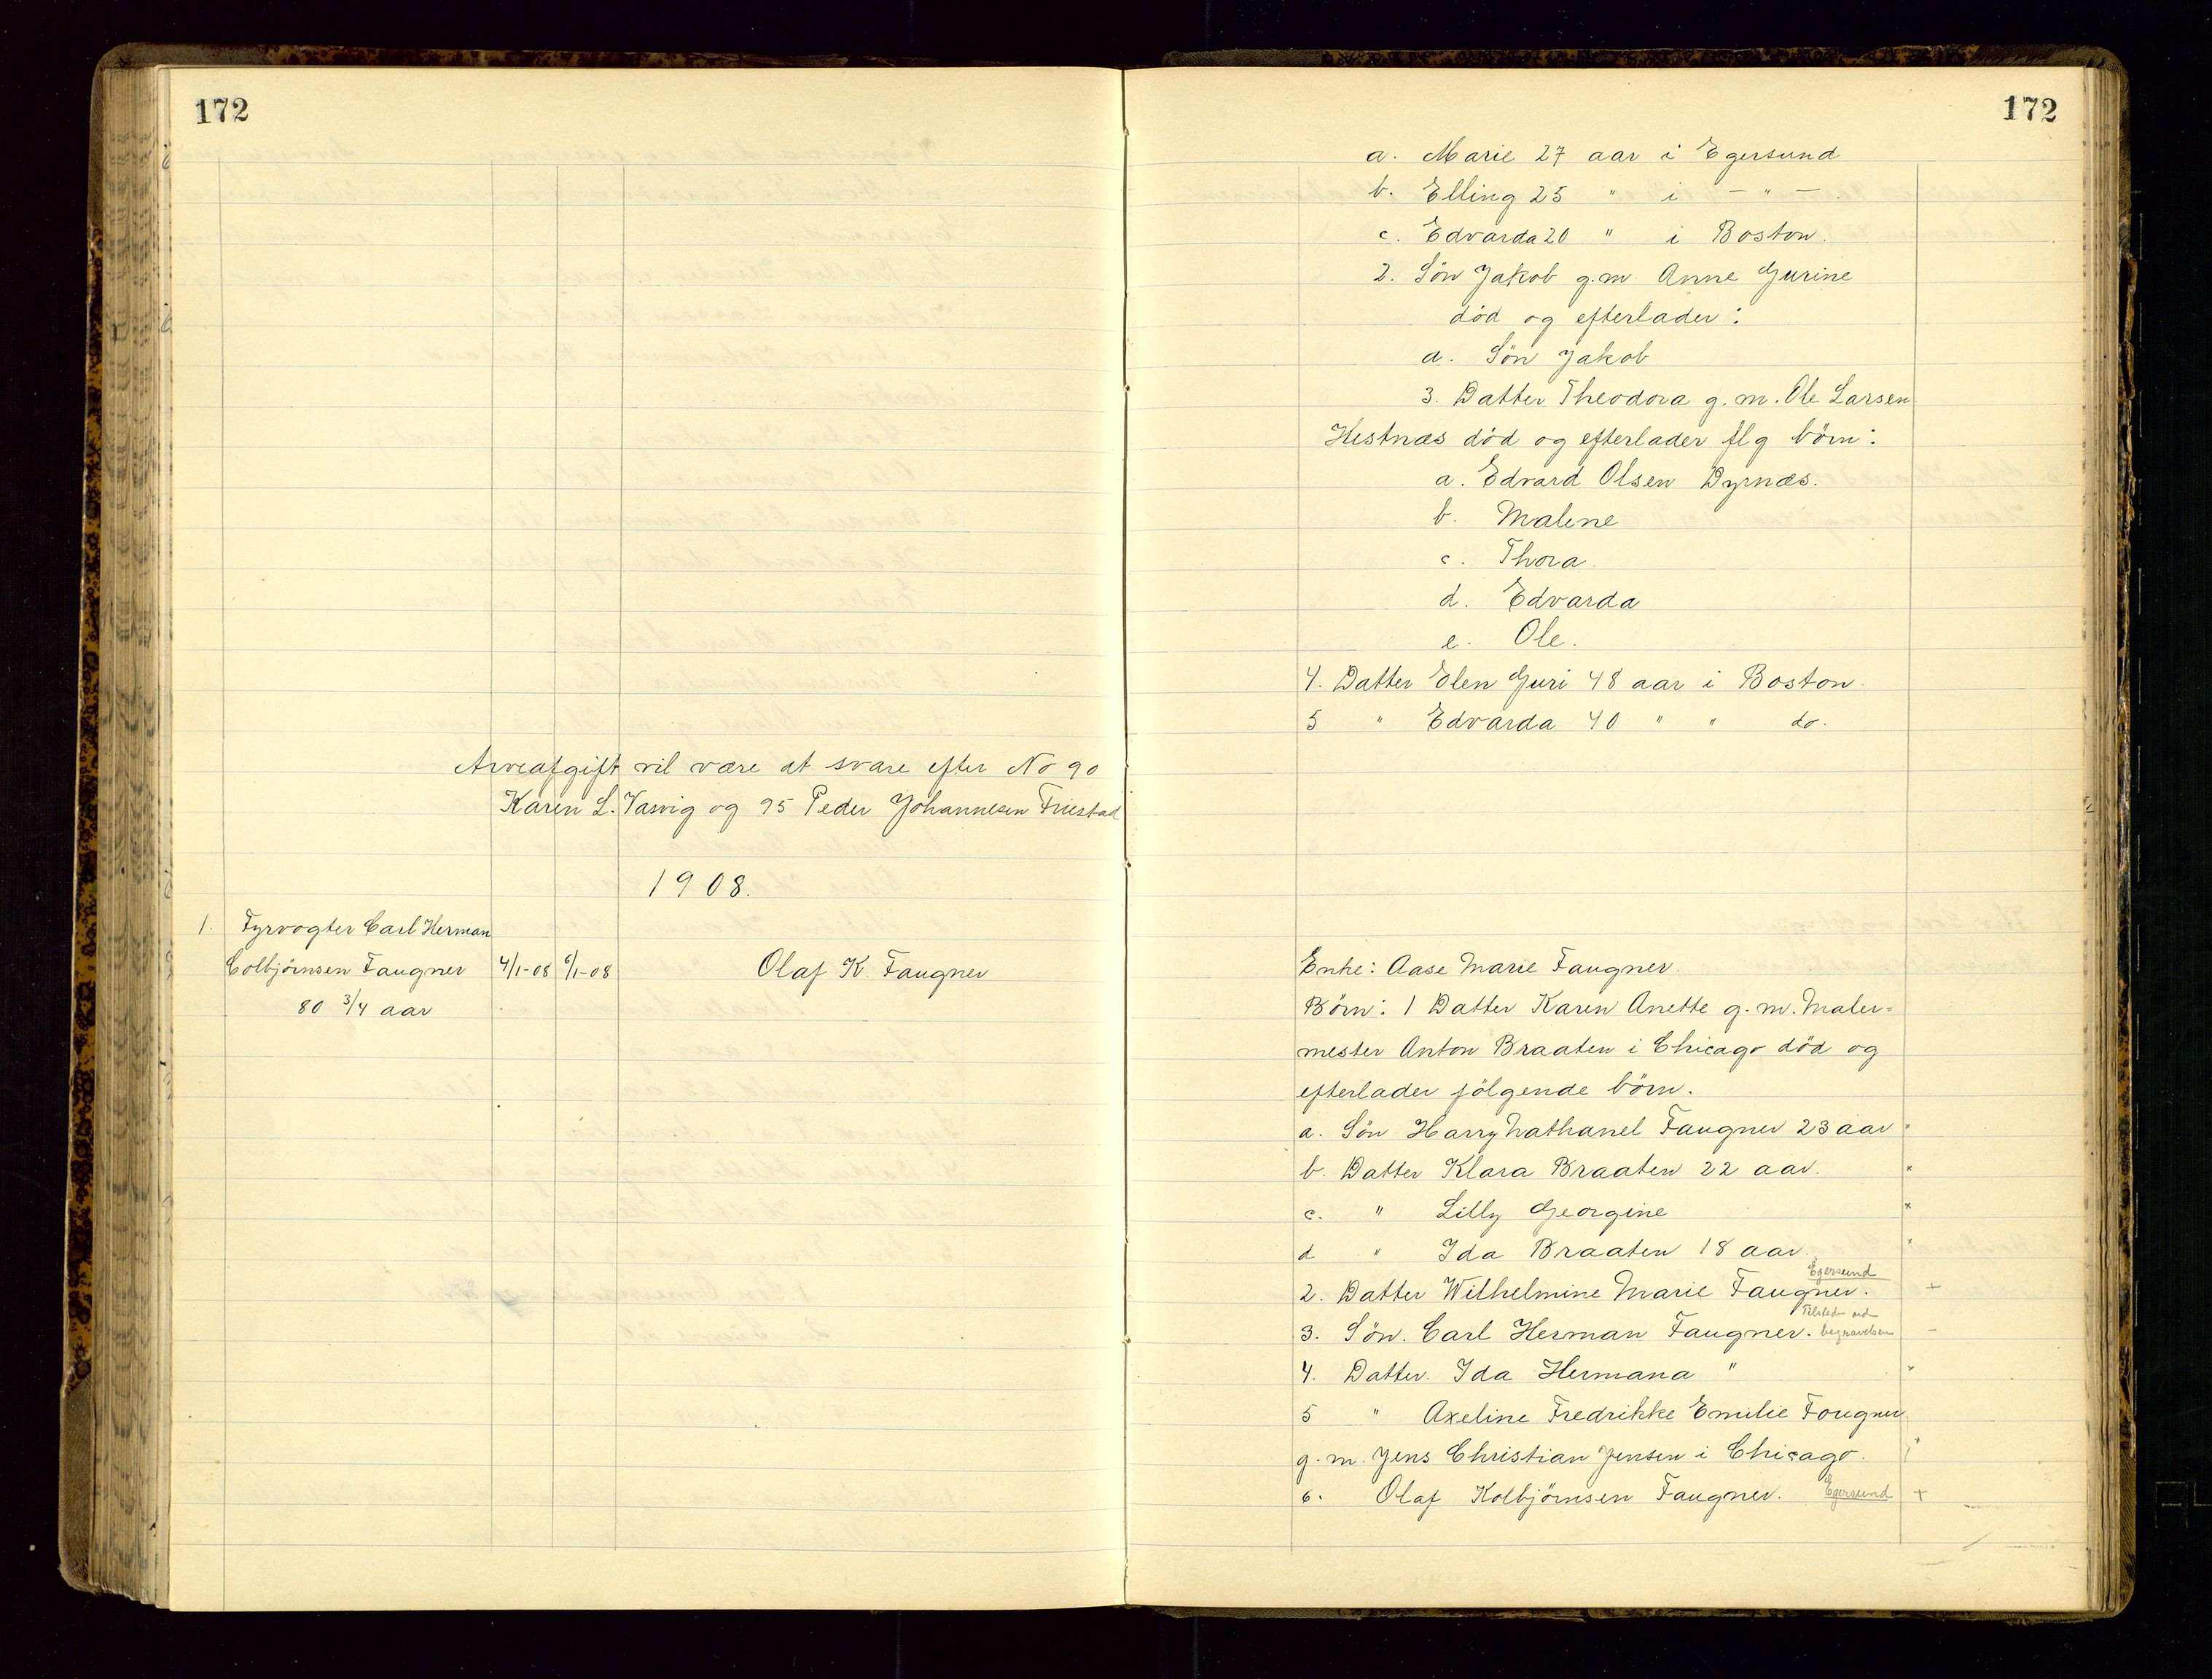 172
Arveafgift vil være at svare efter No 90
Karen L. Vasvig og 95 Peder Johannesen Friestad
1908.
1. Fyrvogter Carl Herman
Colbjörnsen Faugner 4/1-08 6/1-08 Olaf K. Faugner
80 3/4 aar
172
a. Marie 27 aar i Egersund
b. Elling 25 " i — " —
c. Edvarda 20 " i Boston.
2. Sön Jakob g.m. Anne Gurine
död og efterlader:
a. Sön Jakob
3. Datter Theodora g.m. Ole Larsen
Hestnæs död og efterlader flg börn:
a. Edvard Olsen Dyrnæs.
b. Malene
c. Thora.
d. Edvarda
e. Ole.
4. Datter Elen Guri 48 aar i Boston.
5 " Edvarda 40 " " do.
Enke: Aase Marie Faugner.
Börn: 1 Datter Karen Anette g.m. Maler=
mester Anton Braaten i Chicago död og
efterlader fölgende börn.
a. Sön Harry Nathanel Faugner 23 aar ×
b. Datter Klara Braaten 22 aar. ×
c. " Lilly Georgine ×
d " Ida Braaten 18 aar. ×
Egersund
2. Datter Wilhelmine Marie Faugner. +
Tilstede ved
3. Sön. Carl Herman Faugner. begravelsen —
4. Datter. Ida Hermana " ×
5 " Axeline Fredrikke Emilie Fougner
g.m. Jens Christian Jensen i Chicago.
6. Olaf Kolbjörnsen Faugner. Egersund +